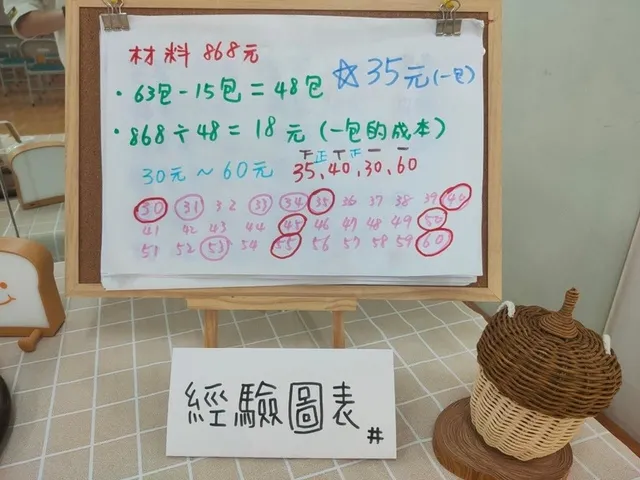 材料 868元
・63包-15包=48包 ☆35元(一包)
・868÷48=18元(一包的成本)
30元~60元 35、40、30、60
30 31 32 33 34 35 36 37 38 39 40
41 42 43 44 45 46 47 48 49 50
51 52 53 54 55 56 57 58 59 60
經驗圖表
#